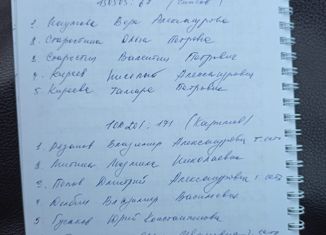 150505: 69 (Списов)
1. Наумова Вера Александровна
2. Старостина Ольга Петровна
3. Старостин Валентин Петрович
4. Киреев Николай Александрович
5. Киреева Тамара Петровна
100201: 191
1. Рязанов Владимир Александрович
2. Митина Людмила Николаевна
3. Попов Дмитрий Александрович
4. Владимир Васильевич
5. Гусаков Юрий Константинович